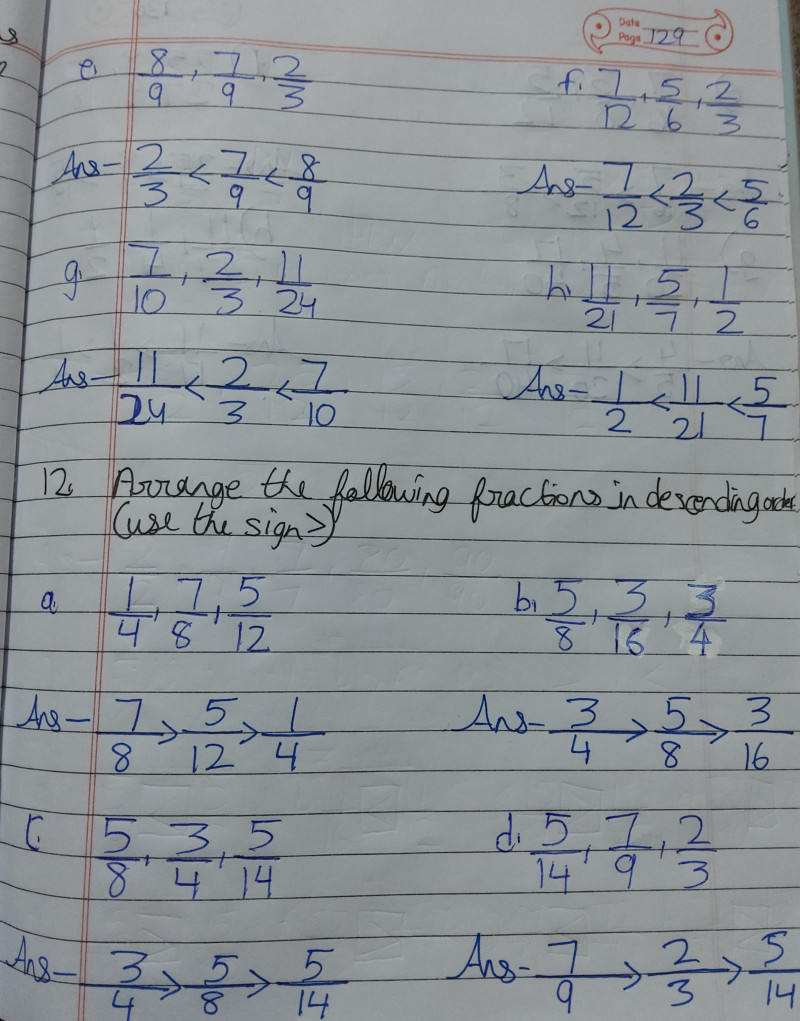 Date
Page 129
e. 8/9, 7/9, 2/3 f. 7/12, 5/6, 2/3
Ans- 2/3 < 7/9 < 8/9 Ans- 7/12 < 2/3 < 5/6
g. 7/10, 2/3, 11/24 h. 11/21, 5/7, 1/2
Ans- 11/24 < 2/3 < 7/10 Ans- 1/2 < 11/21 < 5/7
12. Arrange the following fractions in descending order
(use the sign >)
a. 1/4, 7/8, 5/12 b. 5/8, 3/16, 3/4
Ans- 7/8 > 5/12 > 1/4 Ans- 3/4 > 5/8 > 3/16
c. 5/8, 3/4, 5/14 d. 5/14, 7/9, 2/3
Ans- 3/4 > 5/8 > 5/14 Ans- 7/9 > 2/3 > 5/14